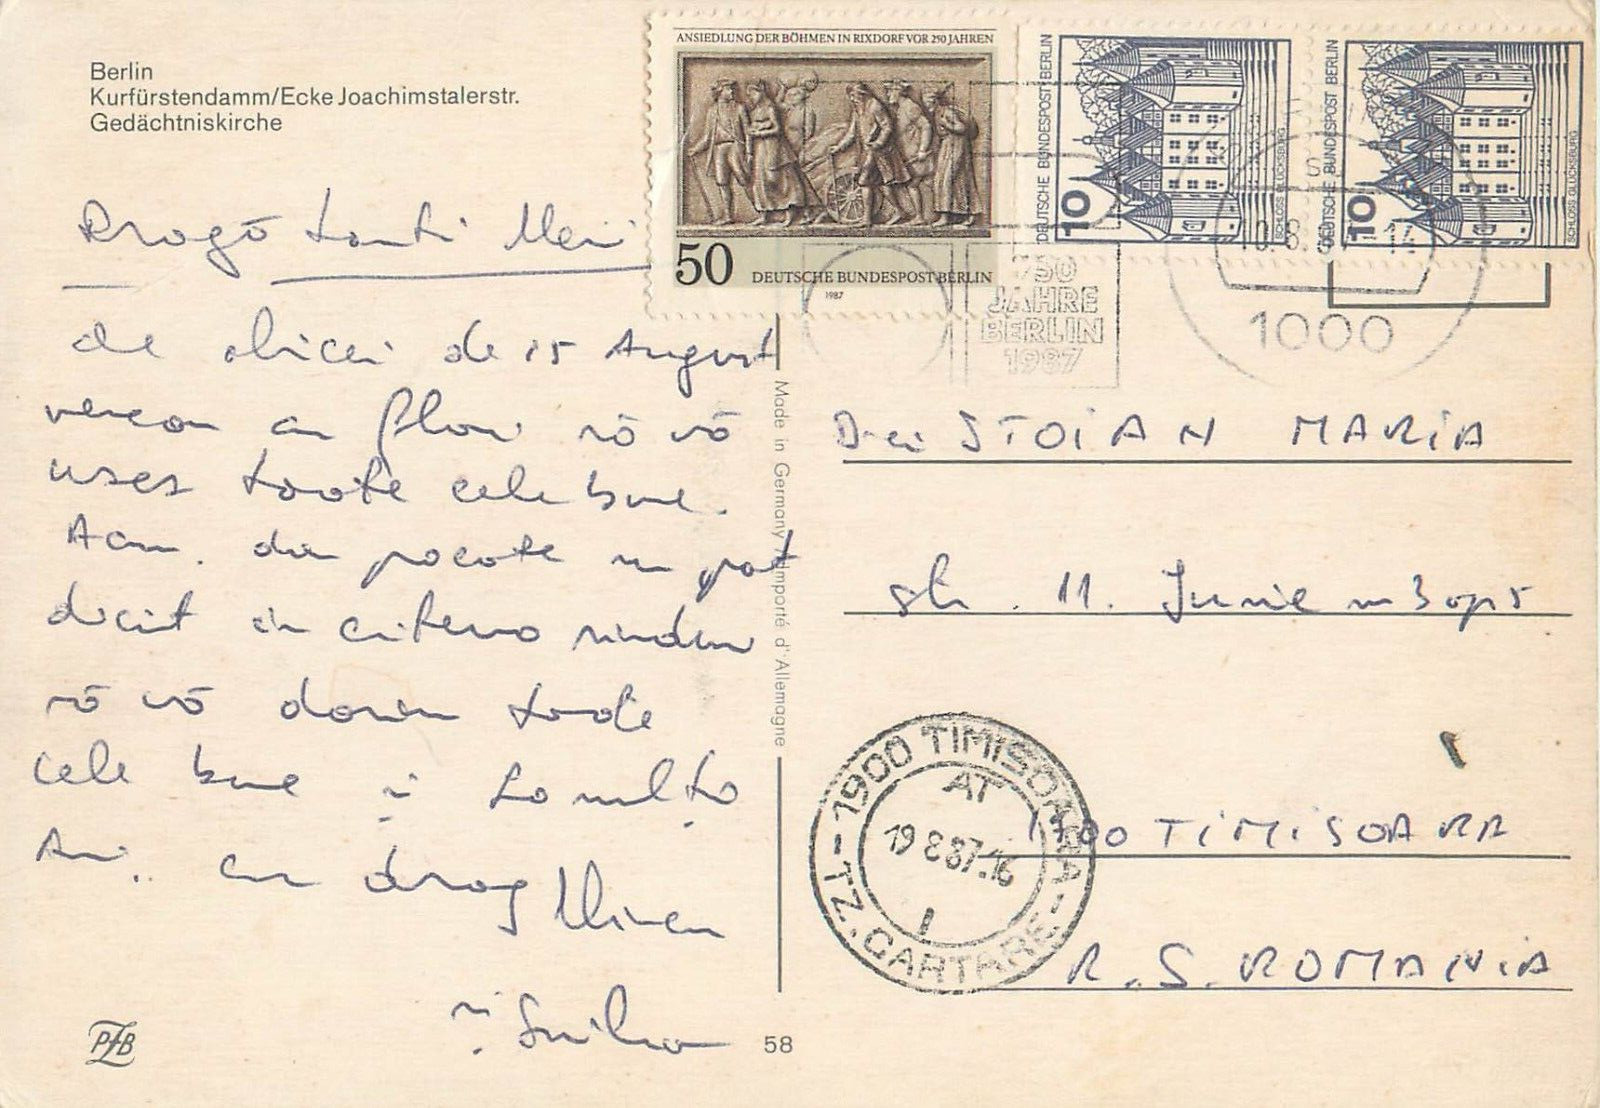 Berlin
Kurfürstendamm/Ecke Joachimstalerstr.
Gedächtniskirche
ANSIEDLUNG DER BÖHMEN IN RIXDORF VOR 250 JAHREN
50 DEUTSCHE BUNDESPOST BERLIN
1987
DEUTSCHE BUNDESPOST BERLIN
10
SCHLOSS GLÜCKSBURG
DEUTSCHE BUNDESPOST BERLIN
10
SCHLOSS GLÜCKSBURG
750
JAHRE
BERLIN
1987
1000
Dragă tanti Meri
de obicei de 15 August
veneam cu flori să vă
urez toate cele bune.
Acum. din păcate nu pot
decit in
să vă dorim toate
cele bune și La mulți
Ani.. cu drag Miren
și
Made in Germany Importé d'Allemagne
STOIAN MARIA
str. 11. Iunie
1900 TIMISOARA
R.S. ROMANIA
1900 TIMISOARA
AT
19 8 87.16
1
TZ. CARTARE
PZB
58